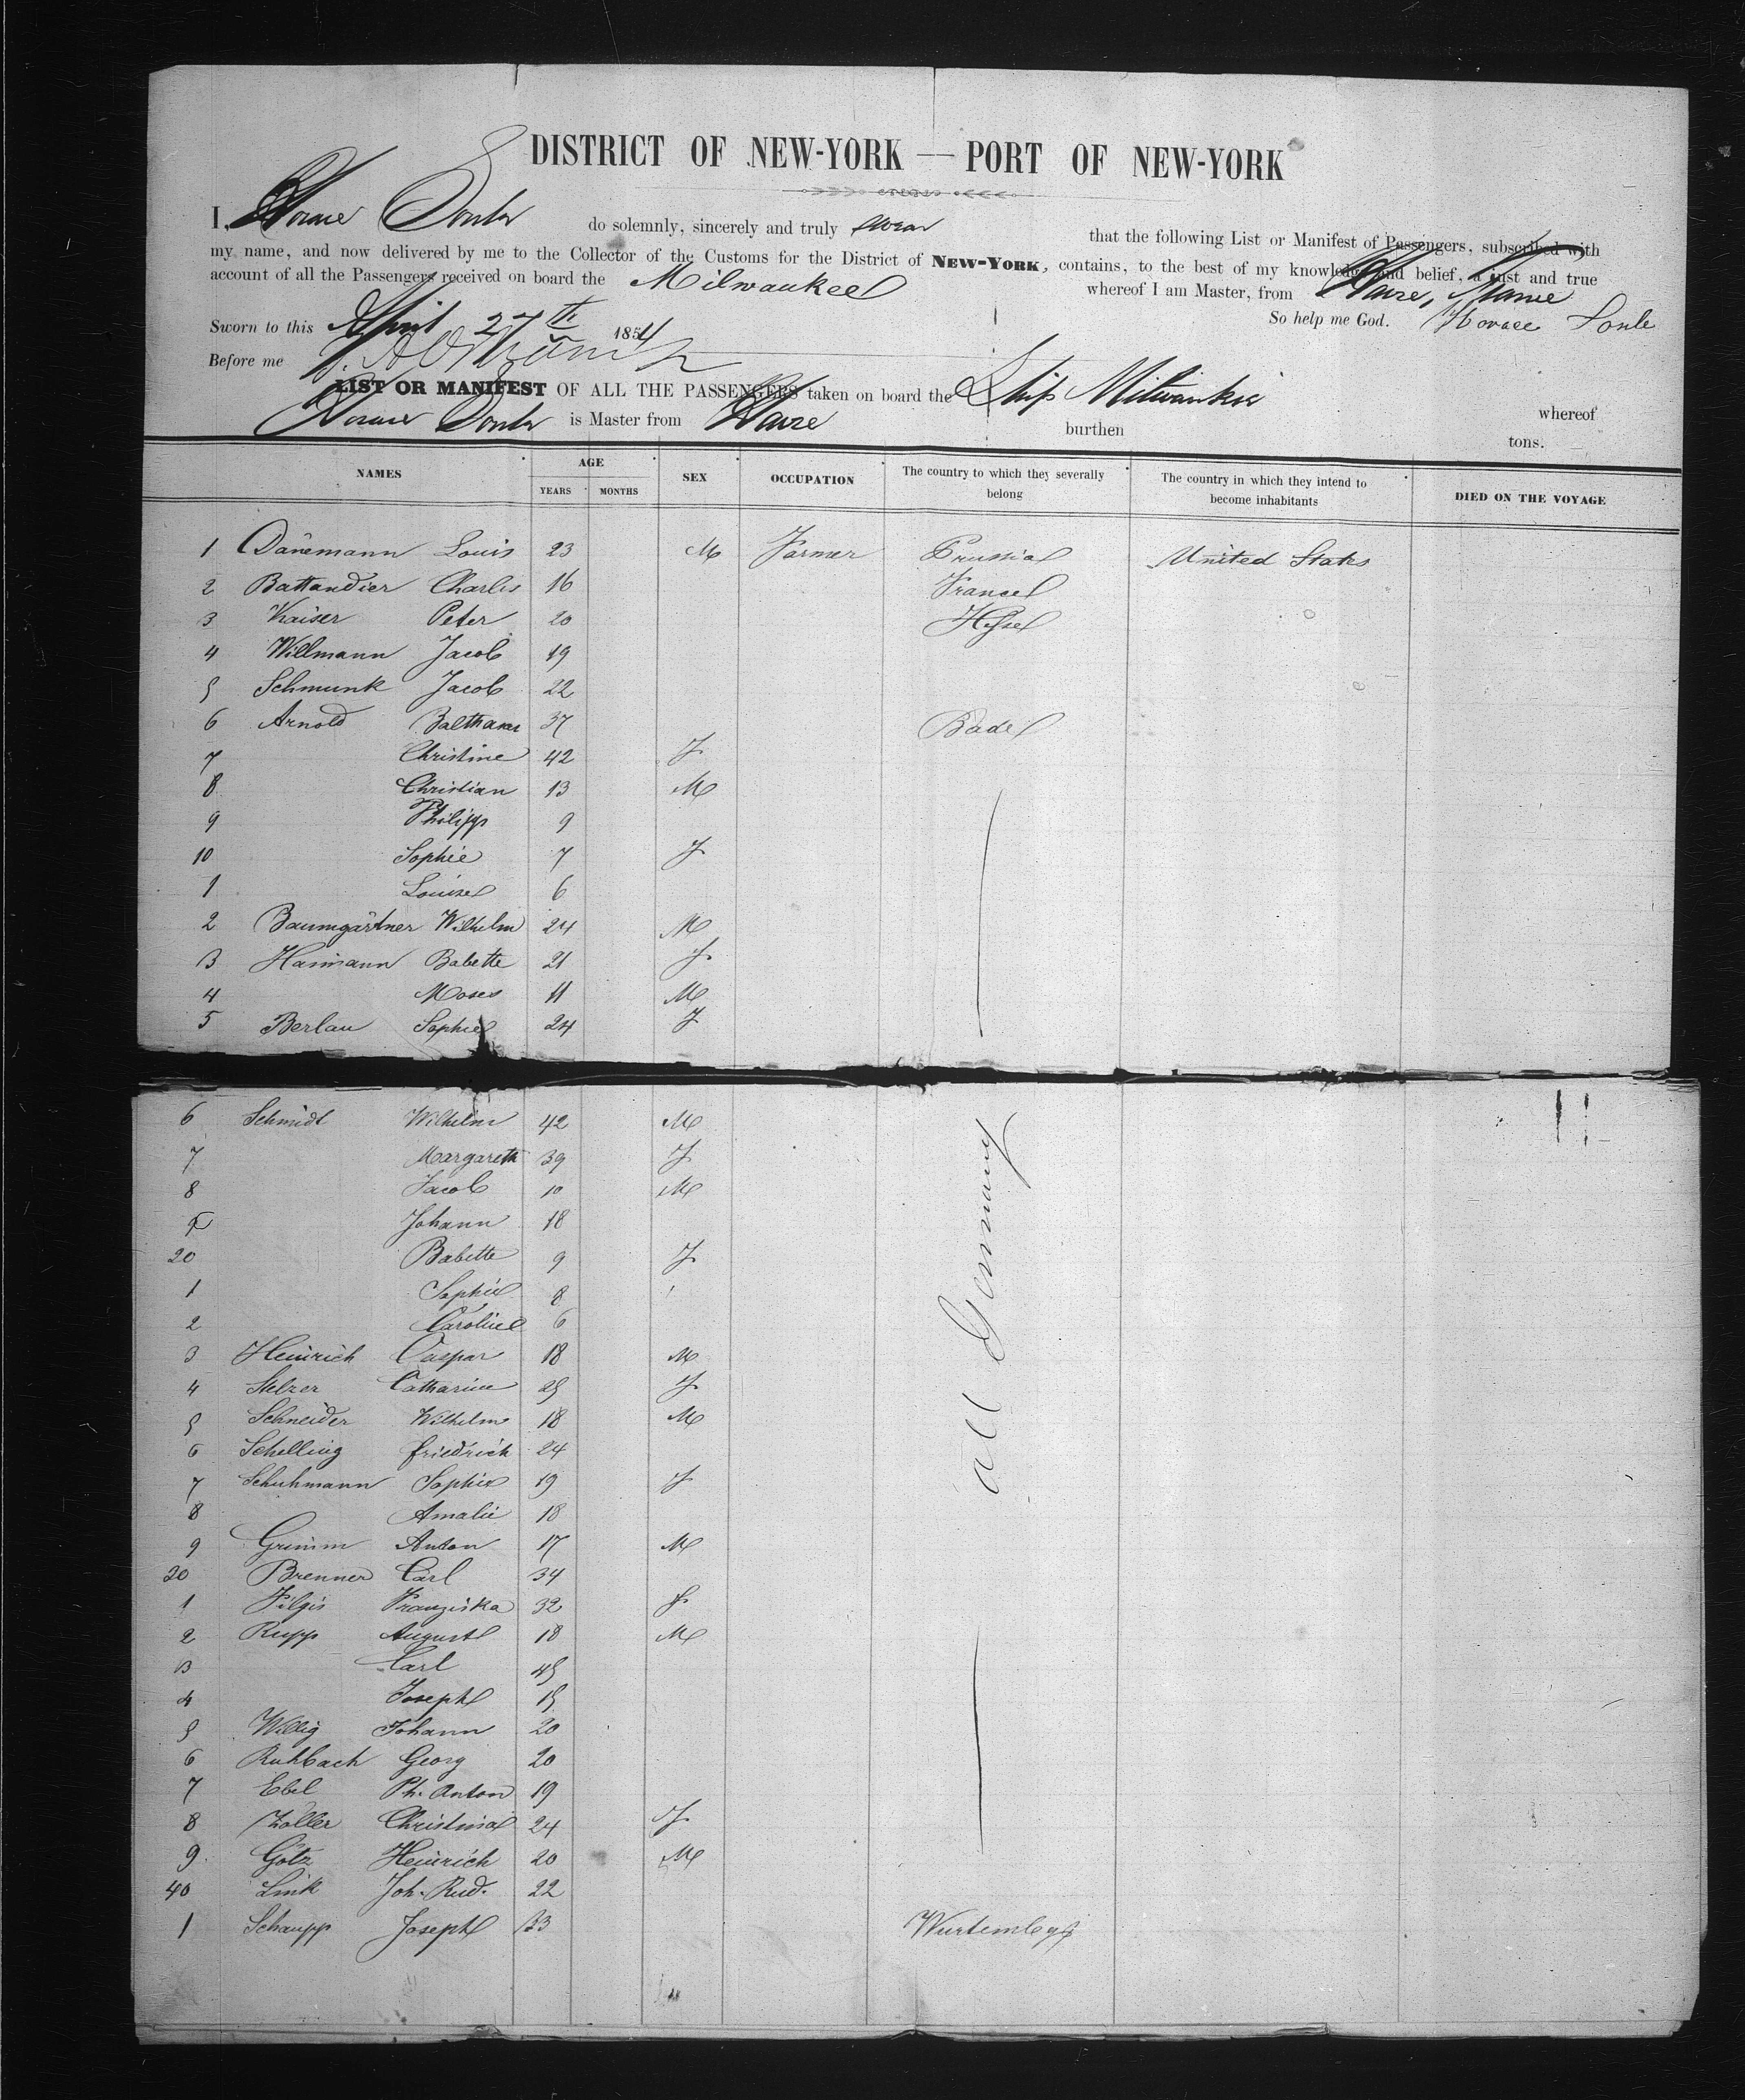 DISTRICT OF NEW-YORK — PORT OF NEW-YORK
I, Horace Soule do solemnly, sincerely and truly swear that the following List or Manifest of Passengers, subscribed with
my name, and now delivered by me to the Collector of the Customs for the District of NEW-YORK, contains, to the best of my knowledge and belief, a just and true
account of all the Passengers received on board the Milwaukee whereof I am Master, from Havre, France
Sworn to this April 27th 1854 So help me God. Horace Soule
Before me
LIST OR MANIFEST OF ALL THE PASSENGERS taken on board the Ship Milwaukie whereof
Horace Soule is Master from Havre burthen tons.
NAMES AGE YEARS MONTHS SEX OCCUPATION The country to which they severally belong The country in which they intend to become inhabitants DIED ON THE VOYAGE
1 Dänemann Louis 23 M Farmer Prussia United States
2 Battandier Charles 16 France
3 Kaiser Peter 20 Hesse
4 Willmann Jacob 19
5 Schmunk Jacob 22
6 Arnold Balthaser 37 Bade
7 Christine 42 F
8 Christian 13 M
9 Philipp 9
10 Sophie 7 F
1 Louise 6
2 Baumgärtner Wilhelm 24 M
3 Haimann Babette 21 F
4 Moses 11 M
5 Berlau Sophie 24 F
6 Schmidt Wilhelm 42 M
7 Margareth 39 F
8 Jacob 10 M
9 Johann 18
20 Babette 9 F
1 Sophie 8
2 Caroline 6
3 Heinrich Caspar 18 M
4 Stelzer Catharine 25 F
5 Schneider Wilhelm 18 M
6 Schelling friedrich 24
7 Schuhmann Sophie 19 F
8 Amalie 18
9 Grimm Anton 17 M
30 Brenner Carl 34
1 Pilgis Franziska 32 F
2 Rupp August 18 M
3 Carl 45
4 Joseph 15
5 Willig Johann 20
6 Ruhbach Georg 20
7 Ebel Ph. Anton 19
8 Zoller Christina 24 F
9 Götz Heinrich 20 M
40 Link Joh. Rud. 22
1 Schaupp Joseph 33 Wurtemberg
all Germany